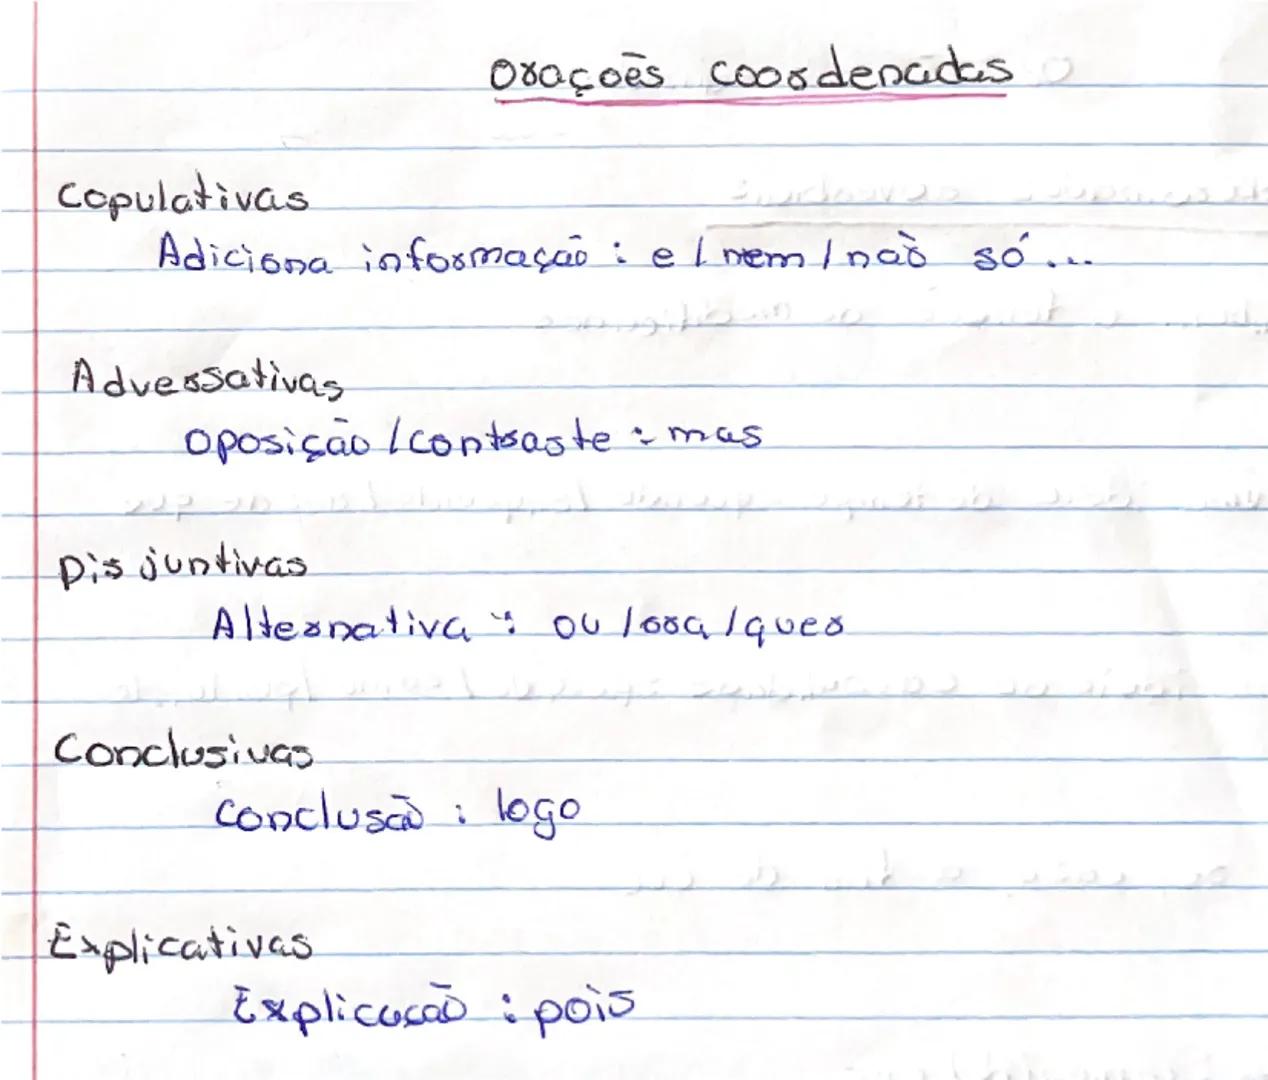 Orações coordenadas
Copulativas
Adiciona informação : e / nem / não só ...
Adversativas
Oposição / contraste : mas
Disjuntivas
Alternativa : ou / ora / quer
Conclusivas
Conclusão : logo
Explicativas
Explicação : pois